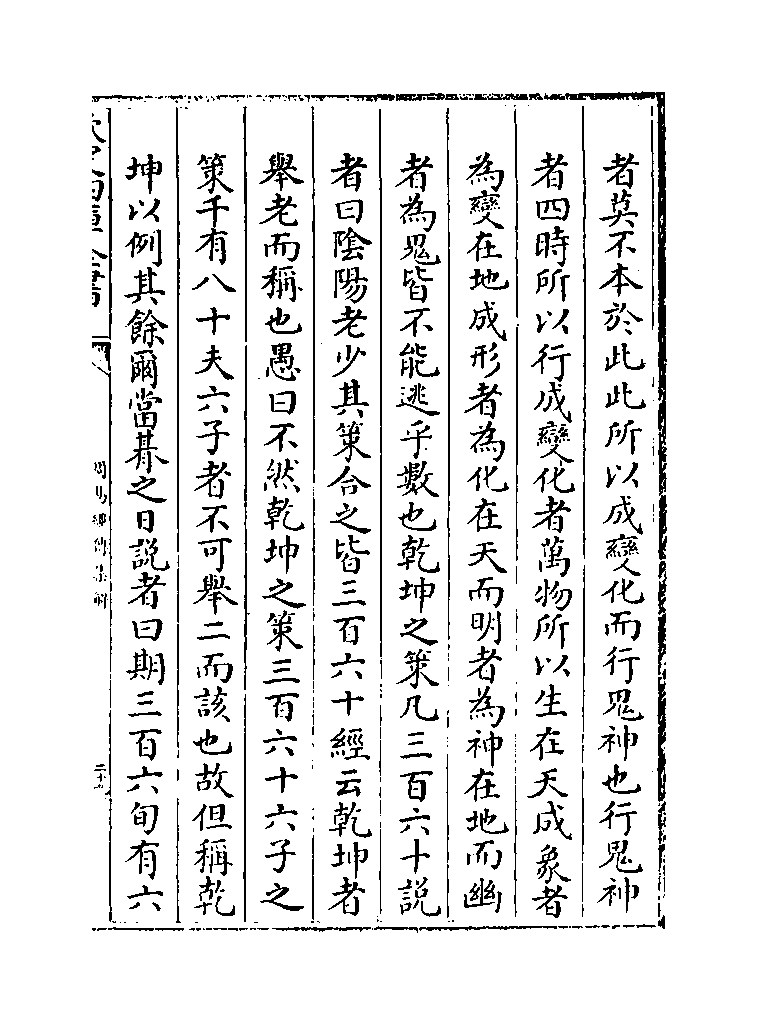 者莫不本於此此所以成變化而行鬼神也行鬼神
者四時所以行成變化者萬物所以生在天成象者
為變在地成形者為化在天而明者為神在地而幽
者為鬼皆不能逃乎數也乾坤之策凡三百六十説
者曰陰陽老少其策合之皆三百六十經云乾坤者
舉老而稱也愚曰不然乾坤之策三百六十六子之
策千有八十夫六子者不可舉二而該也故但稱乾
坤以例其餘爾當朞之日説者曰期三百六旬有六